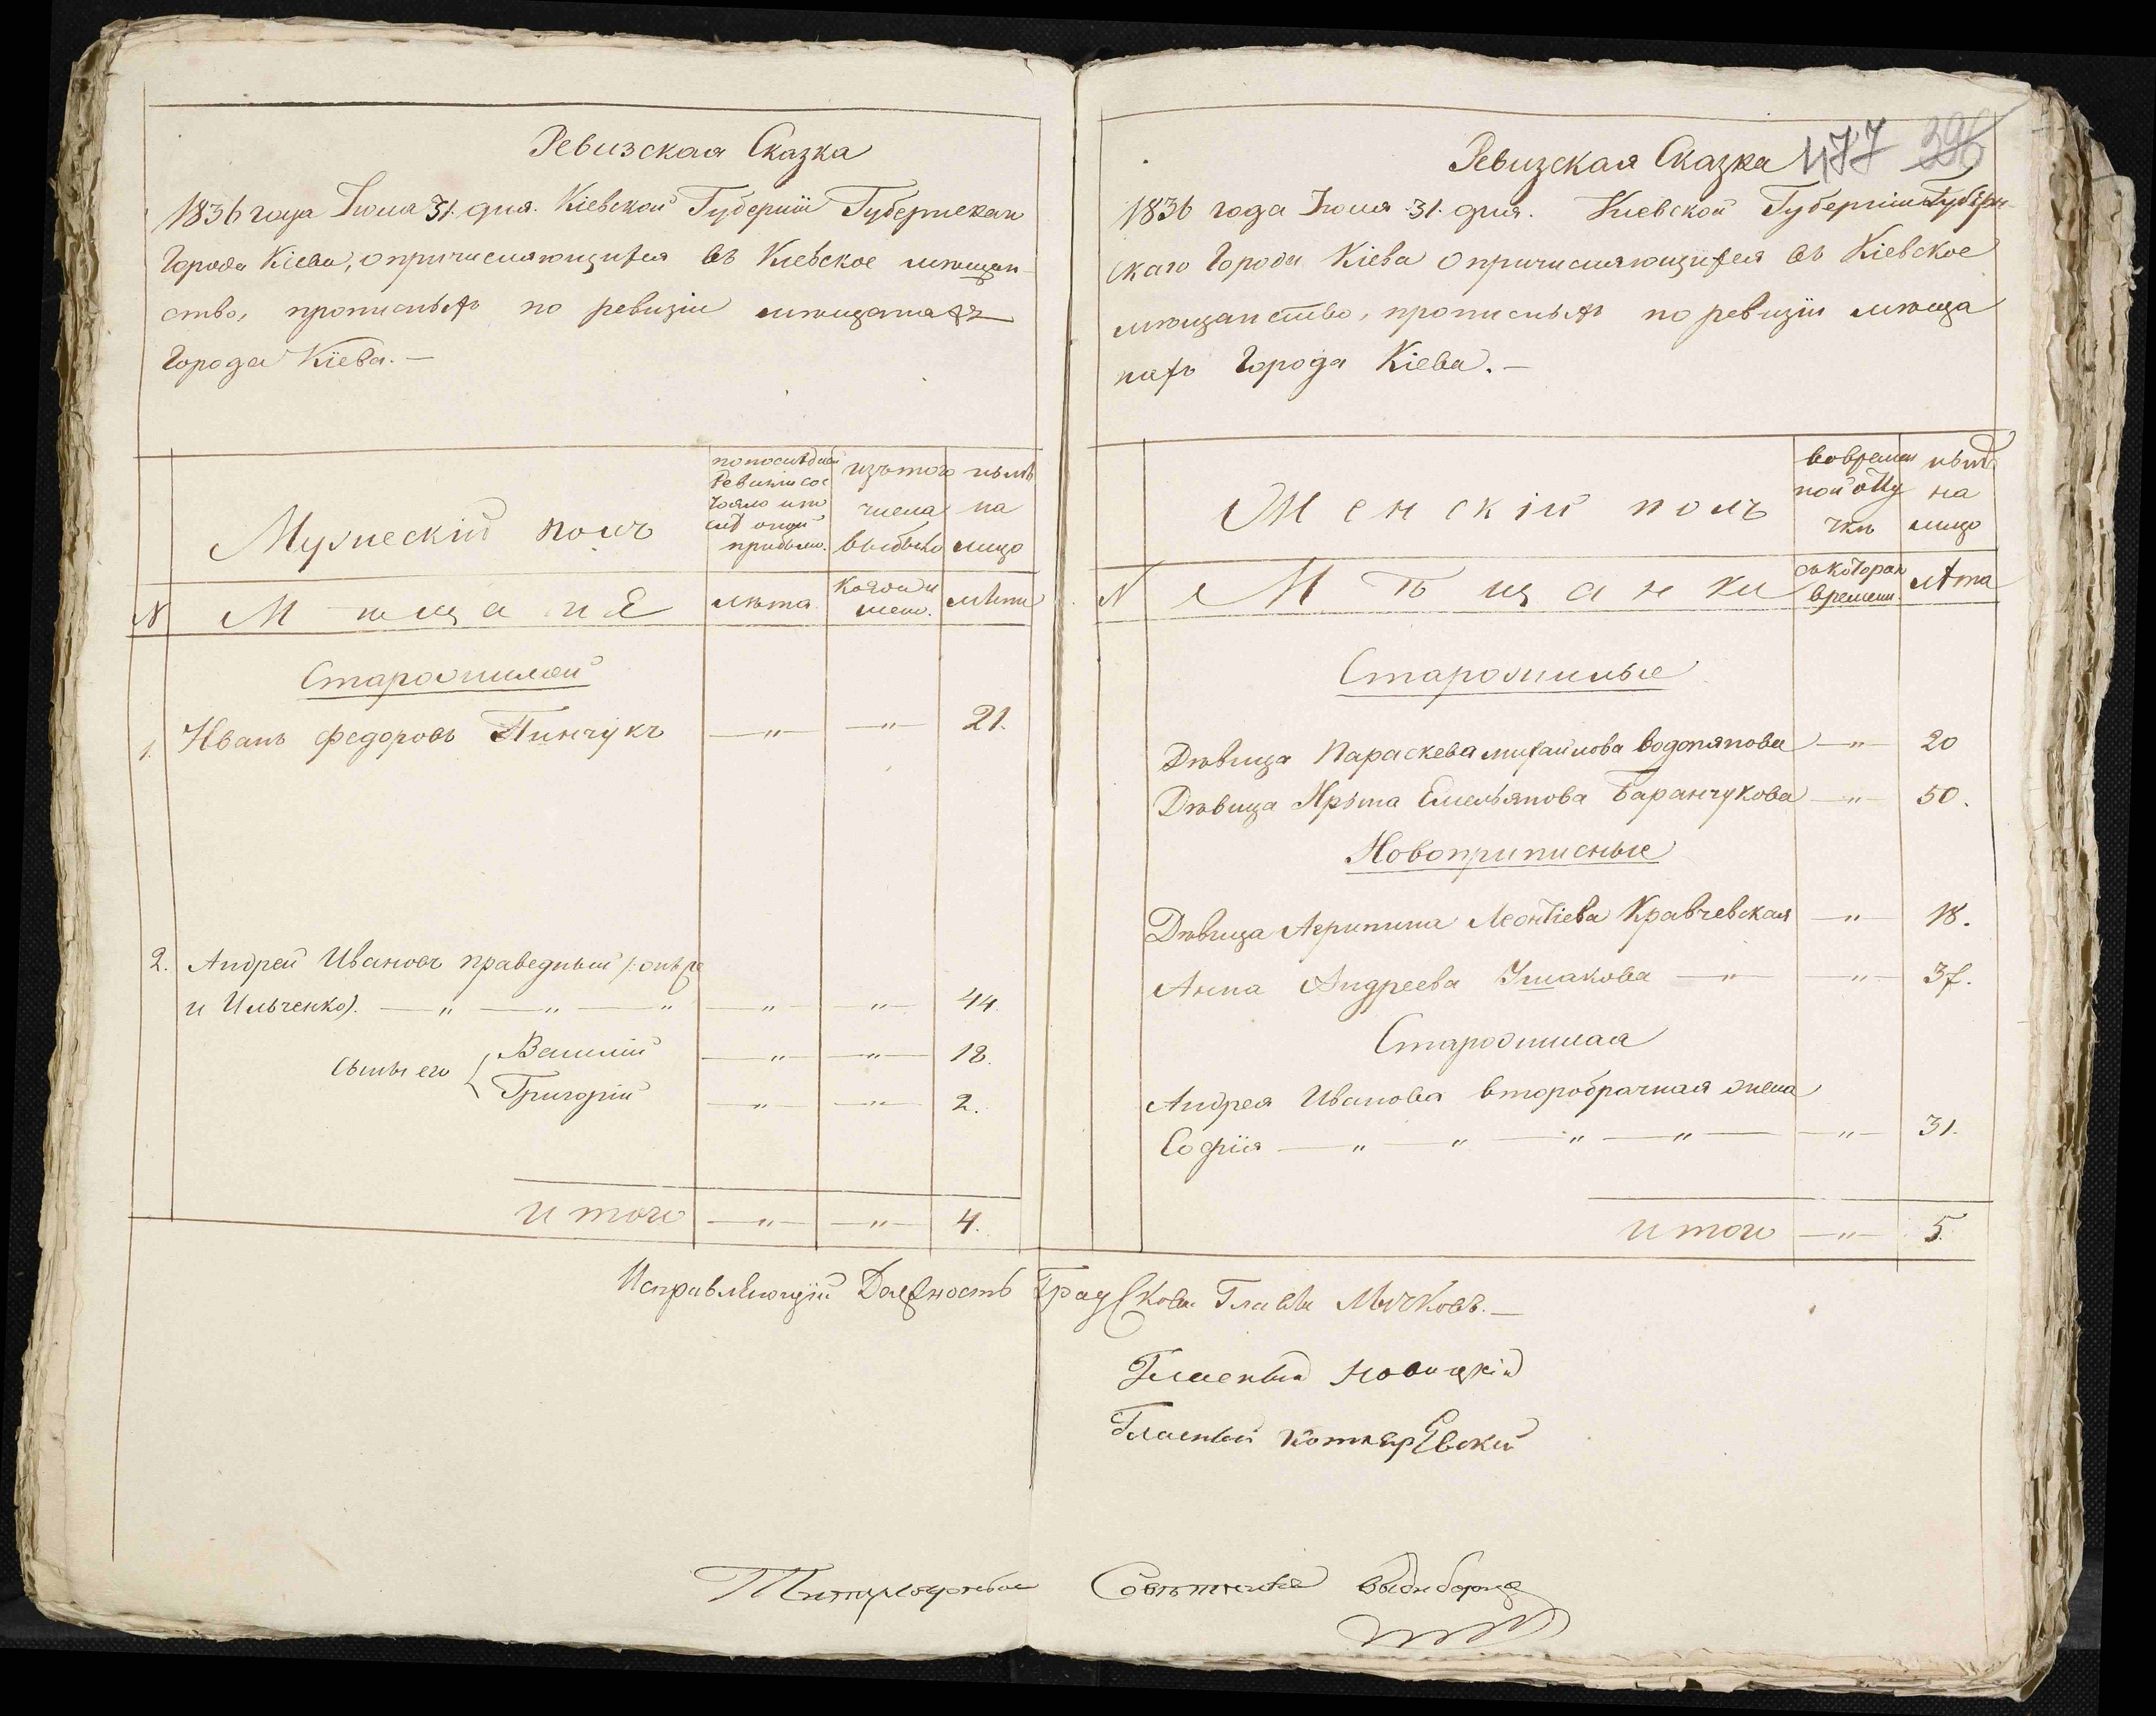 Ревизская Сказка
1836 года Іюля 31. дня. Кіевской Губерніи Губернскаго
Города Кіева, опричисляющихся въ Кіевское мѣщан-
ство, прописныхъ по ревизіи мѣщанахъ
Города Кіева.—
Мужескій полъ
по послѣдней Ревизіи сос
тояло и по
слѣ оной
прибыло.
изъ того
числа
выбыло
нынѣ
на
лицо
N Мѣщане
лѣта.
Когда и
лѣта
Старожилой
1. Иванъ Федоровъ Пинчукъ —„— —„— 21.
2. Андрей Ивановъ праведный (: онъ же
и Ильченко). —„— —„— —„— —„— 44.
сыны его Василій —„— —„— 18.
Григорій —„— —„— 2.
Итого —„— —„— 4.
Ревизская Сказка 477 396
1836 года Іюля 31. дня. Кіевской Губерніи Губерн-
скаго Города Кіева опричисляющихся въ Кіевское
мѣщанство, прописныхъ по ревизіи мѣща
нахъ Города Кіева.—
Женскій полъ
во времен
ной отлу
чкѣ
нынѣ
на
лицо
N Мѣщанки
съ котораго
времени.
лѣта
Старожилые
Дѣвица Параскева Михайлова Водопянова —„— 20
Дѣвица Ирына Емельянова Баранчукова —„— 50.
Новоприписные
Дѣвица Агрипина Леонтіева Кравчевская —„— 18.
Анна Андреева Ушакова —„— —„— 37.
Старожилая
Андрея Иванова второбрачная жена
Софія —„— —„— —„— —„— —„— 31.
Итого —„— 5.
Исправляющій Должность Градскова Главы Лычковъ.—
Гласный Новицкій
Гласный Котляревский
Титулярной Совѣтникъ